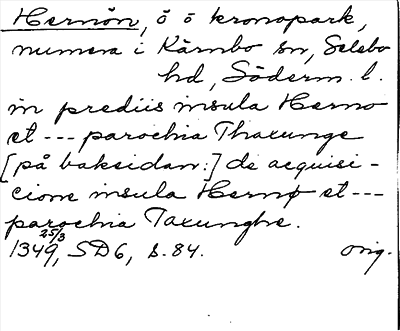 Hernön, ö ö kronopark,
numera i Kärnbo sn, Selebo
hd, Söderm. l.
in prediis insula Herno
et --- parochia Thaxunge
[på baksidan:] de acquisi-
cione insula Hernø et ---
parochia Taxunghe.
25/3
1349, SD6, s. 84. orig.